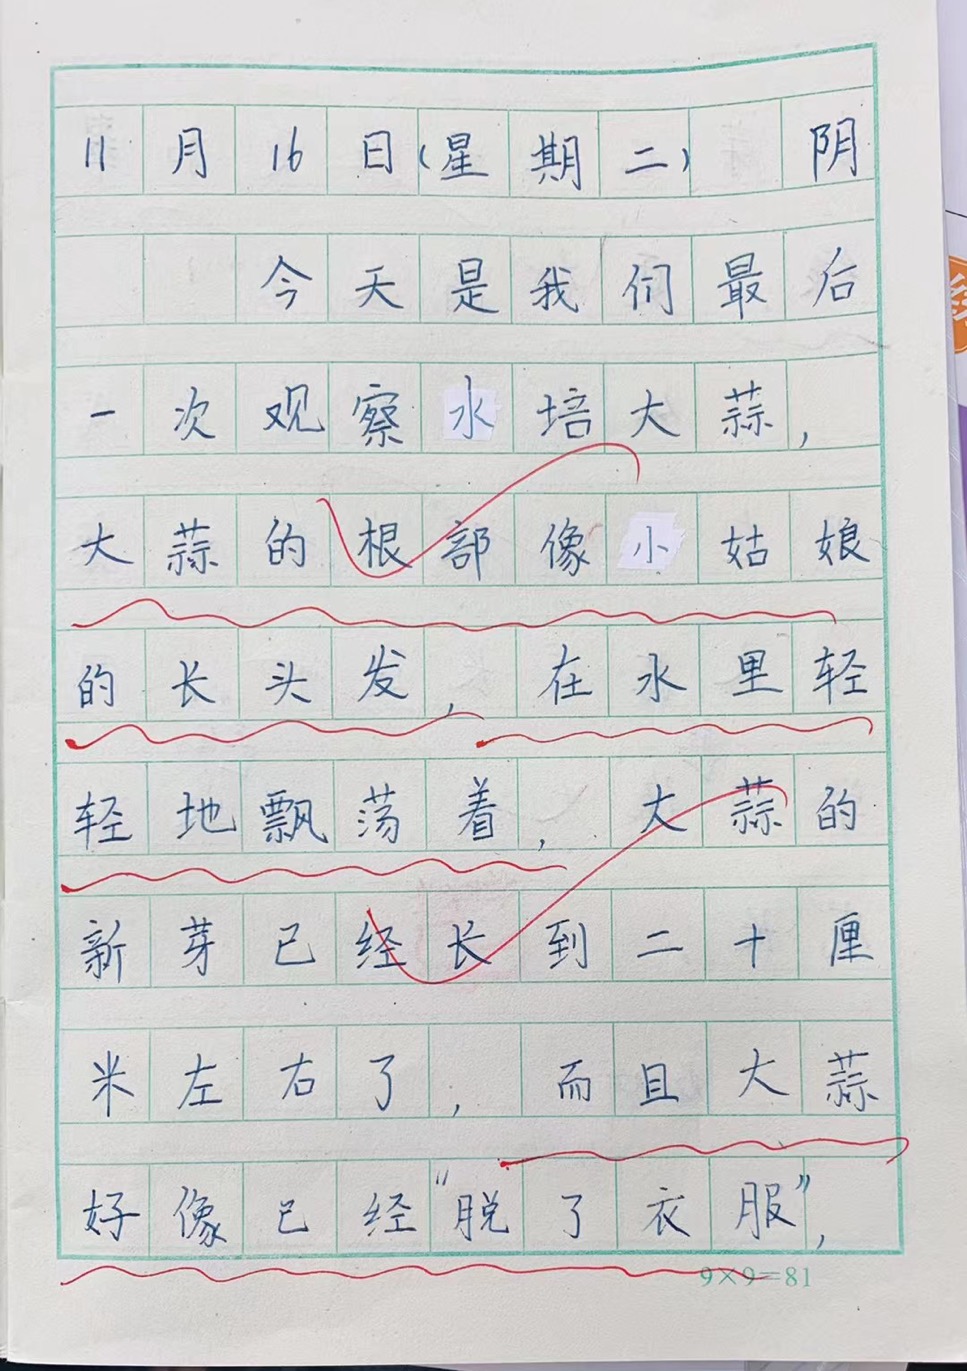 11月16日(星期二) 阴
今天是我们最后
一次观察水培大蒜，
大蒜的根部像小姑娘
的长头发，在水里轻
轻地飘荡着，大蒜的
新芽已经长到二十厘
米左右了，而且大蒜
好像已经“脱了衣服”，
9×9=81